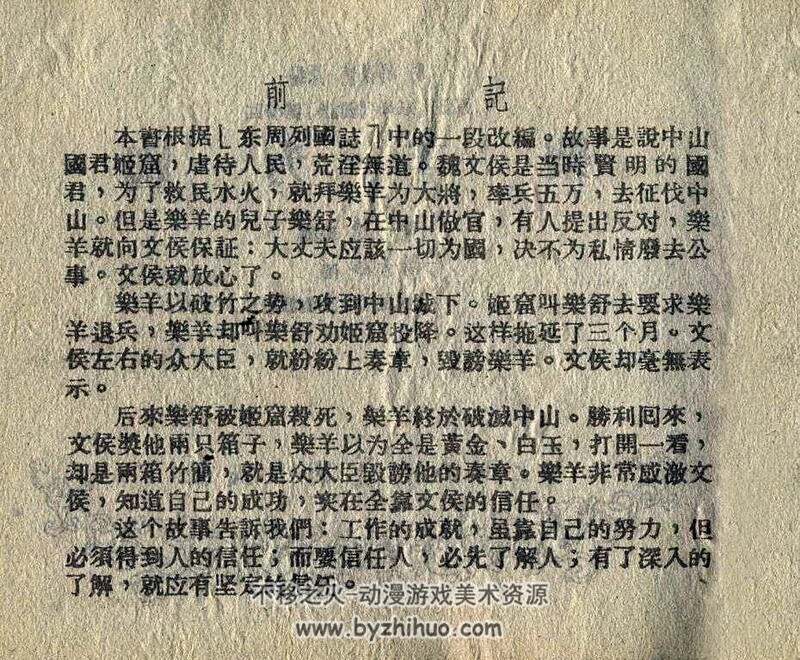 前記
本書根据「东周列國誌」中的一段改編。故事是說中山
國君姬窟，虐待人民，荒淫無道。魏文侯是当時賢明的國
君，为了救民水火，就拜樂羊为大將，率兵五万，去征伐中
山。但是樂羊的兒子樂舒，在中山做官，有人提出反对，樂
羊就向文侯保証：大丈夫应該一切为國，决不为私情廢去公
事。文侯就放心了。
樂羊以破竹之势，攻到中山城下。姬窟叫樂舒去要求樂
羊退兵，樂羊却叫樂舒劝姬窟投降。这样拖延了三个月。文
侯左右的众大臣，就紛紛上奏章，毀謗樂羊。文侯却毫無表
示。
后來樂舒被姬窟殺死，樂羊終於破滅中山。勝利回來，
文侯獎他兩只箱子，樂羊以为全是黃金、白玉，打開一看，
却是兩箱竹簡，就是众大臣毀謗他的奏章。樂羊非常感激文
侯，知道自己的成功，实在全靠文侯的信任。
这个故事告訴我們：工作的成就，虽靠自己的努力，但
必須得到人的信任；而要信任人，必先了解人；有了深入的
了解，就应有坚定的信任。
不移之火-动漫游戏美术资源
www.byzhihuo.com